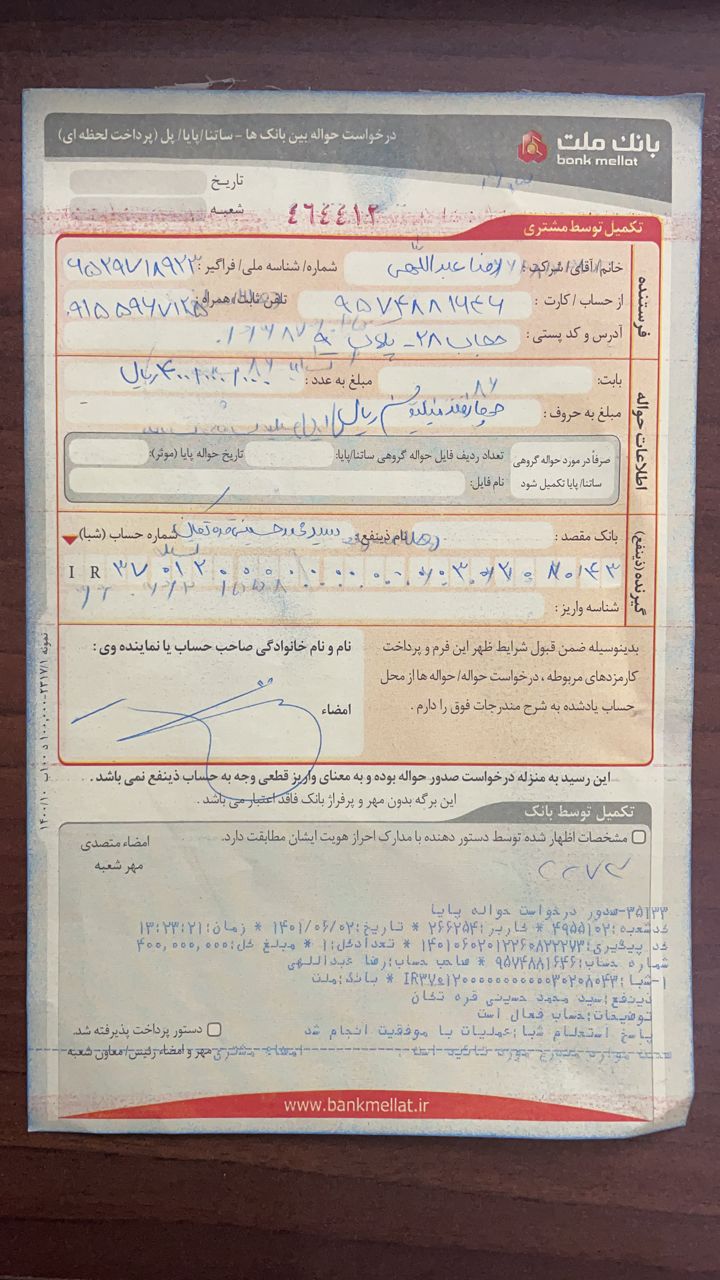 بانک ملت
bank mellat
درخواست حواله بین بانک ها - ساتنا/پایا/ پل (پرداخت لحظه ای)
تاریخ
شعبه
٤٦٤٤١٢
تکمیل توسط مشتری
فرستنده
خانم/آقای/ شرکت: رضا عبداللهی شماره/ شناسه ملی/ فراگیر:
از حساب / کارت : ۹۵۷۴۸۸۱۶۴۶ تلفن ثابت/همراه:
آدرس و کد پستی : حجاب ۲۸- پلاک
اطلاعات حواله
بابت: مبلغ به عدد : ۴۰۰/۰۰۰/۰۰۰ ریال
مبلغ به حروف : چهارصد میلیون ریال
صرفاً در مورد حواله گروهی ساتنا/ پایا تکمیل شود
تعداد ردیف فایل حواله گروهی ساتنا/پایا: تاریخ حواله پایا (موثر):
نام فایل:
گیرنده (ذینفع)
بانک مقصد : نام ذینفع: سید محمد حسینی قره تکان شماره حساب (شبا)
IR ۳۷ ۰۱۲۰ ۰۰۰۰ ۰۰۰۰ ۰۰۳۰ ۲۰۸۰ ۴۳
شناسه واریز :
بدینوسیله ضمن قبول شرایط ظهر این فرم و پرداخت
کارمزدهای مربوطه ، درخواست حواله/ حواله ها از محل
حساب یادشده به شرح مندرجات فوق را دارم .
نام و نام خانوادگی صاحب حساب یا نماینده وی :
امضاء
این رسید به منزله درخواست صدور حواله بوده و به معنای واریز قطعی وجه به حساب ذینفع نمی باشد .
این برگه بدون مهر و پرفراژ بانک فاقد اعتبار می باشد .
تکمیل توسط بانک
مشخصات اظهار شده توسط دستور دهنده با مدارک احراز هویت ایشان مطابقت دارد.
امضاء متصدی
مهر شعبه
۳۵۱۳۳-صدور درخواست حواله پایا
کدشعبه:۴۹۵۵۱۰۲ * کاربر:۲۶۶۲۵۴ * تاریخ:۱۴۰۱/۰۶/۰۲ * زمان:۱۳:۲۳:۲۱
کد پیگیری:۱۴۰۱۰۶۰۲۰۱۲۲۶۰۸۲۲۲۷۳ * تعدادکل:۱ * مبلغ کل:۴۰۰,۰۰۰,۰۰۰
شماره حساب:۹۵۷۴۸۸۱۶۴۶ * صاحب حساب:رضا عبداللهی
۱-شبا:IR۳۷۰۱۲۰۰۰۰۰۰۰۰۰۰۰۳۰۲۰۸۰۴۳ * بانک:ملت
ذینفع:سید محمد حسینی قره تکان
توضیحات:حساب فعال است
پاسخ استعلام شبا:عملیات با موفقیت انجام شد
دستور پرداخت پذیرفته شد.
مهر و امضاء رئیس/ معاون شعبه
www.bankmellat.ir